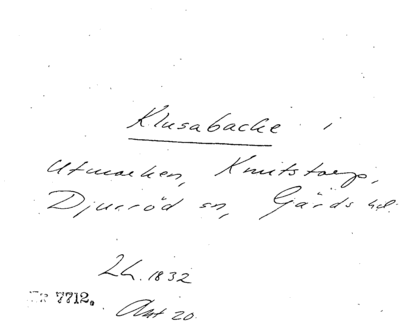 Klusabacke i
Utmarken, Knutstorp,
Djurröd sn, Gärds hd.
2h. 1832
Nr 7712. Akt 20